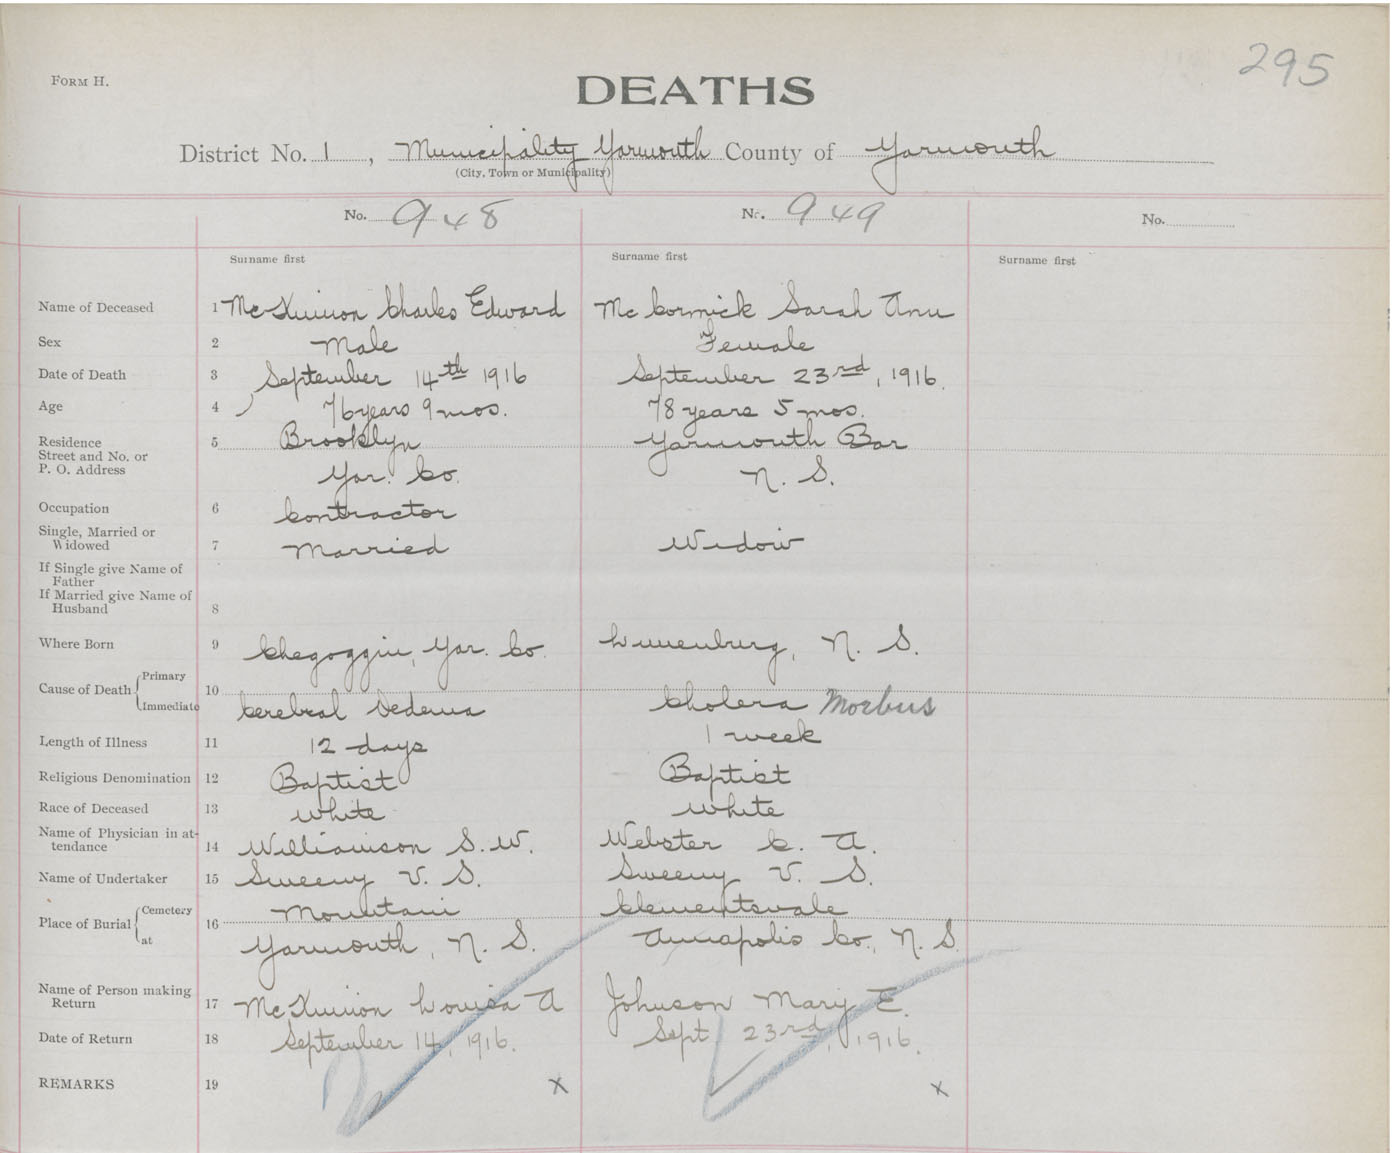 295
FORM H.
DEATHS
District No. 1, Municipality Yarmouth County of Yarmouth
(City, Town or Municipality)
No. 948 No. 949 No.
Surname first Surname first Surname first
Name of Deceased 1 McKinnon Charles Edward McCormick Sarah Ann
Sex 2 Male Female
Date of Death 3 September 14th 1916 September 23rd, 1916.
Age 4 76 years 9 mos. 78 years 5 mos.
Residence 5 Brooklyn Yarmouth Bar
Street and No. or
P. O. Address Yar. Co. N. S.
Occupation 6 Contractor
Single, Married or
Widowed 7 Married Widow
If Single give Name of
Father
If Married give Name of
Husband 8
Where Born 9 Chegoggin, Yar. Co. Lunenburg, N. S.
Cause of Death { Primary
Immediate 10 Cerebral Oedema Cholera Morbus
Length of Illness 11 12 days 1 week
Religious Denomination 12 Baptist Baptist
Race of Deceased 13 White White
Name of Physician in at-
tendance 14 Williamson S. W. Webster C. A.
Name of Undertaker 15 Sweeny V. S. Sweeny V. S.
Place of Burial { Cemetery 16 Mountain Clementsvale
at Yarmouth, N. S. Annapolis Co., N. S.
Name of Person making
Return 17 McKinnon Louisa A Johnson Mary E.
Date of Return 18 September 14, 1916. Sept. 23rd, 1916.
REMARKS 19 x x